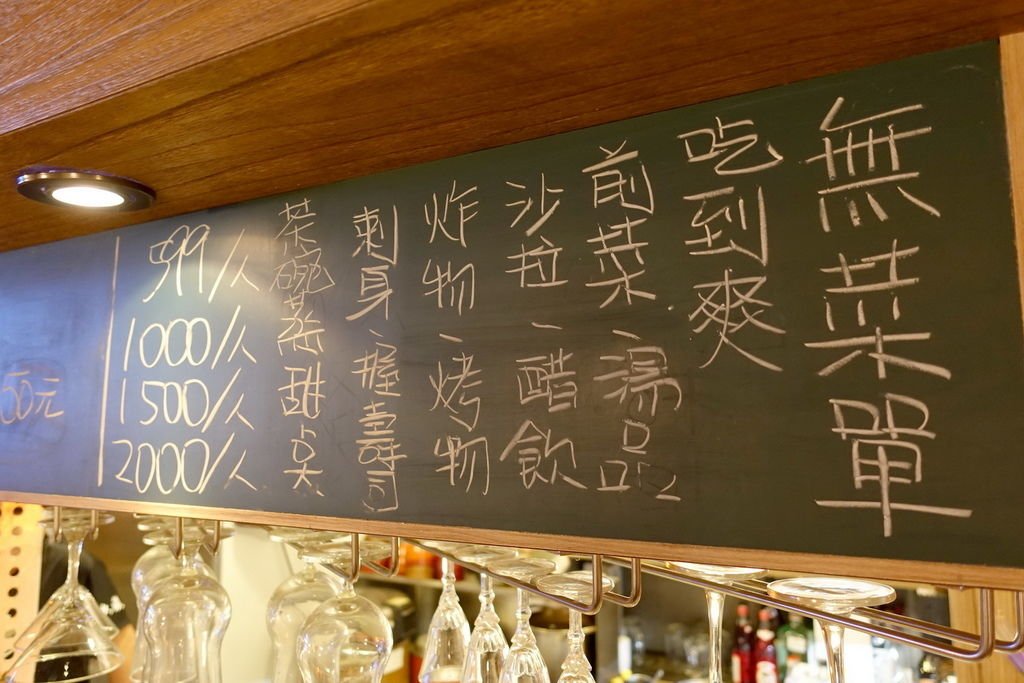 無菜單
吃到爽
前菜、湯品
沙拉、醋飲
炸物、烤物
刺身、握壽司
茶碗蒸 甜点
599/人
1000/人
1500/人
2000/人
50元